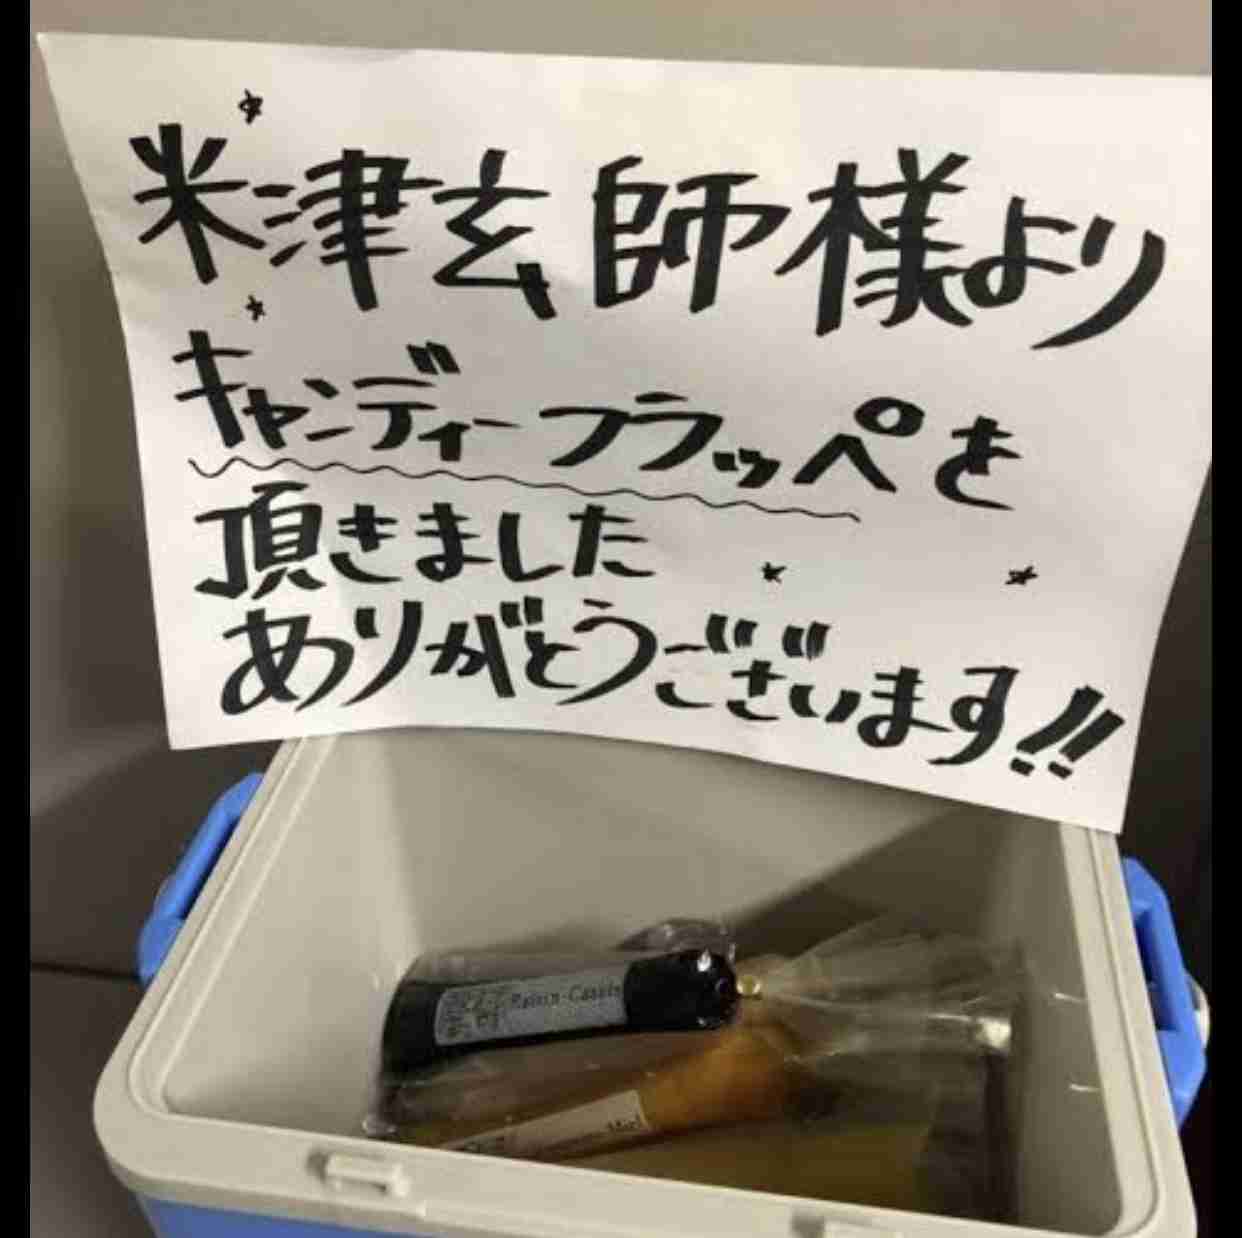 米津玄師様より
キャンディーフラッペを
頂きました
ありがとうございます!!
Raisin-Cassis